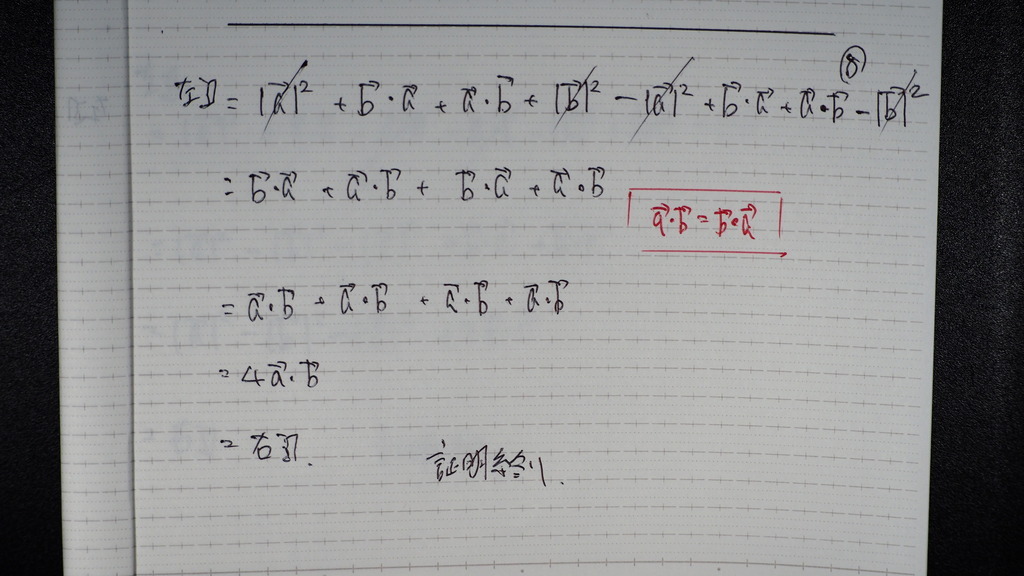 ⑧
左辺 = |a⃗|² + b⃗・a⃗ + a⃗・b⃗ + |b⃗|² - |a⃗|² + b⃗・a⃗ + a⃗・b⃗ - |b⃗|²
= b⃗・a⃗ + a⃗・b⃗ + b⃗・a⃗ + a⃗・b⃗
a⃗・b⃗ = b⃗・a⃗
= a⃗・b⃗ + a⃗・b⃗ + a⃗・b⃗ + a⃗・b⃗
= 4a⃗・b⃗
= 右辺.
証明終り.